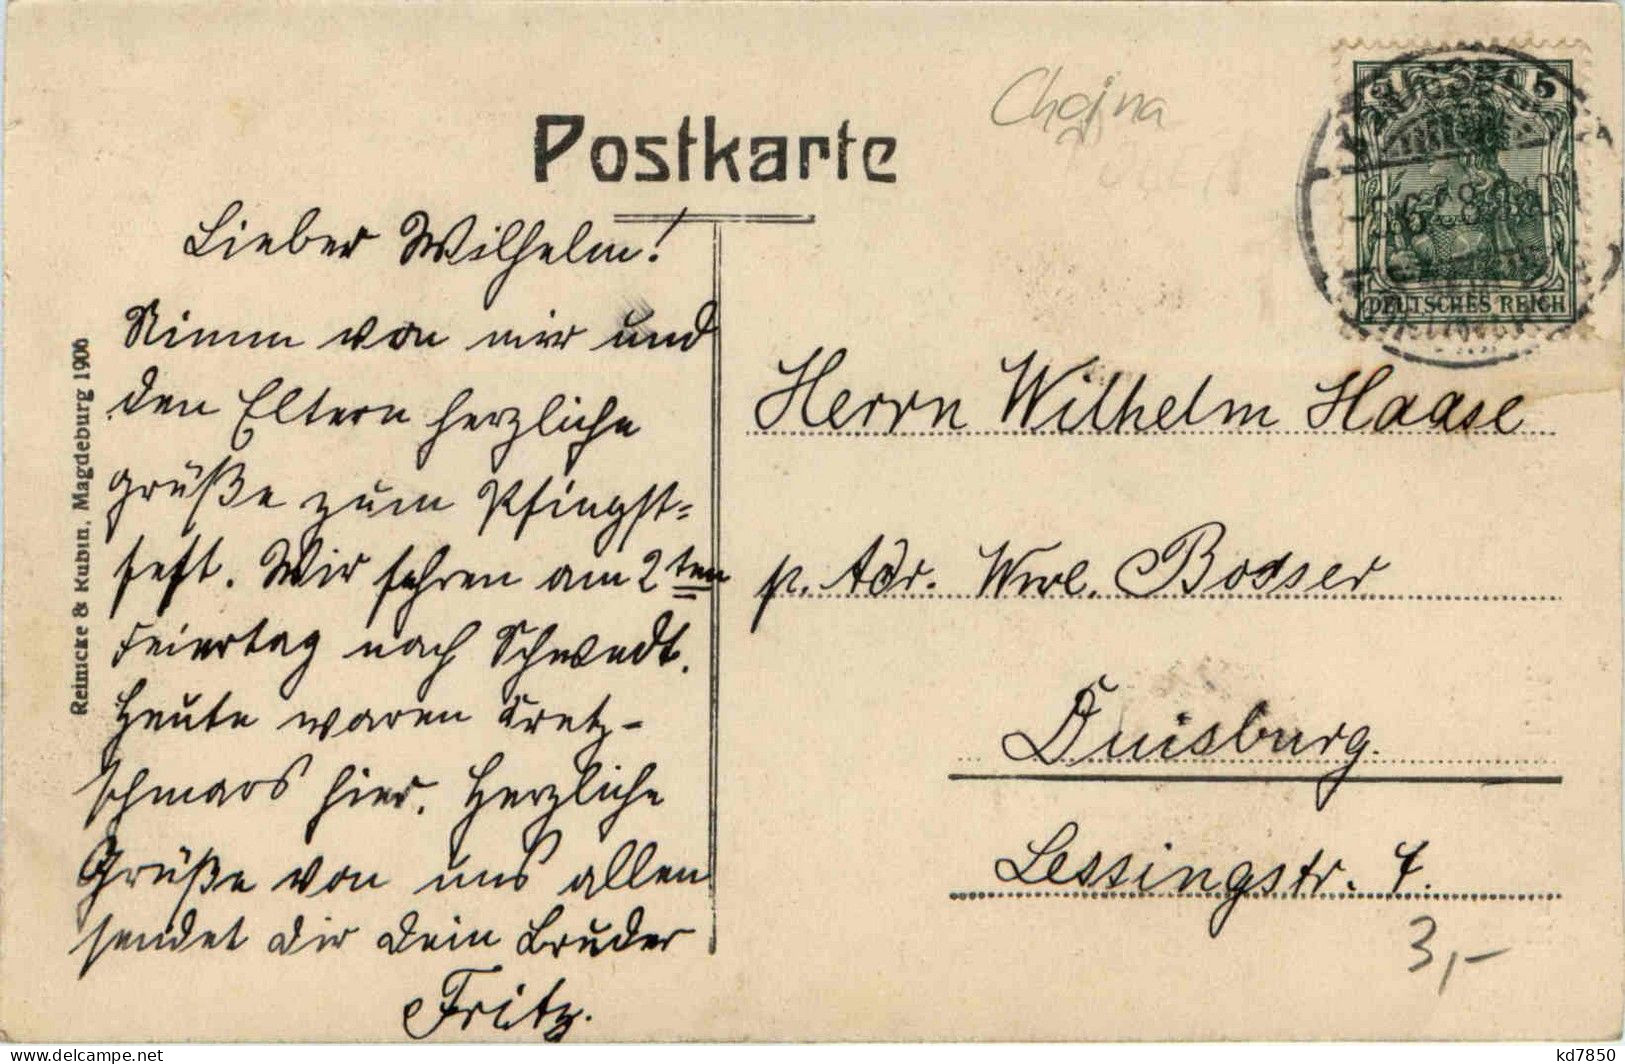 Postkarte
Chojna
5 5
DEUTSCHES REICH
Lieber Wilhelm!
Nimm von mir und
den Eltern herzliche
Grüße zum Pfingst-
feste. Wir fahren am 2ten
Feiertag nach Schwedt.
Heute waren Kretz-
schmars hier. Herzliche
Grüße von uns allen
sendet dir dein Bruder
Fritz.
Reinicke & Rubin, Magdeburg 1906
Herrn Wilhelm Haase
p. Adr. Wwe. Bosser
Duisburg.
Lessingstr. 7.
3,-
kd7850